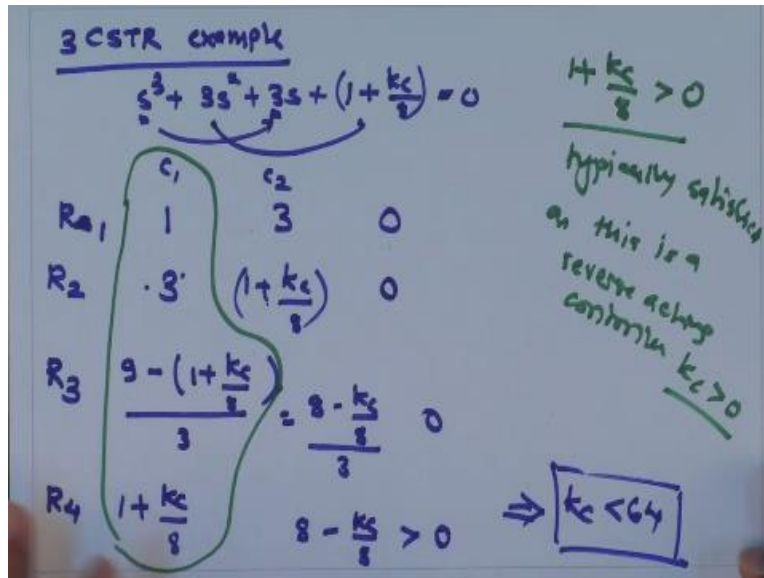 3 CSTR example
s³ + 3s² + 3s + (1 + kc/8) = 0
c₁ c₂
R₁ 1 3 0
R₂ 3 (1 + kc/8) 0
R₃ 9 - (1 + kc/8) / 3 = 8 - kc/8 / 3 0
R₄ 1 + kc/8
8 - kc/8 > 0 ⇒ kc < 64
1 + kc/8 > 0
typically satisfied
as this is a
reverse acting
controller kc > 0